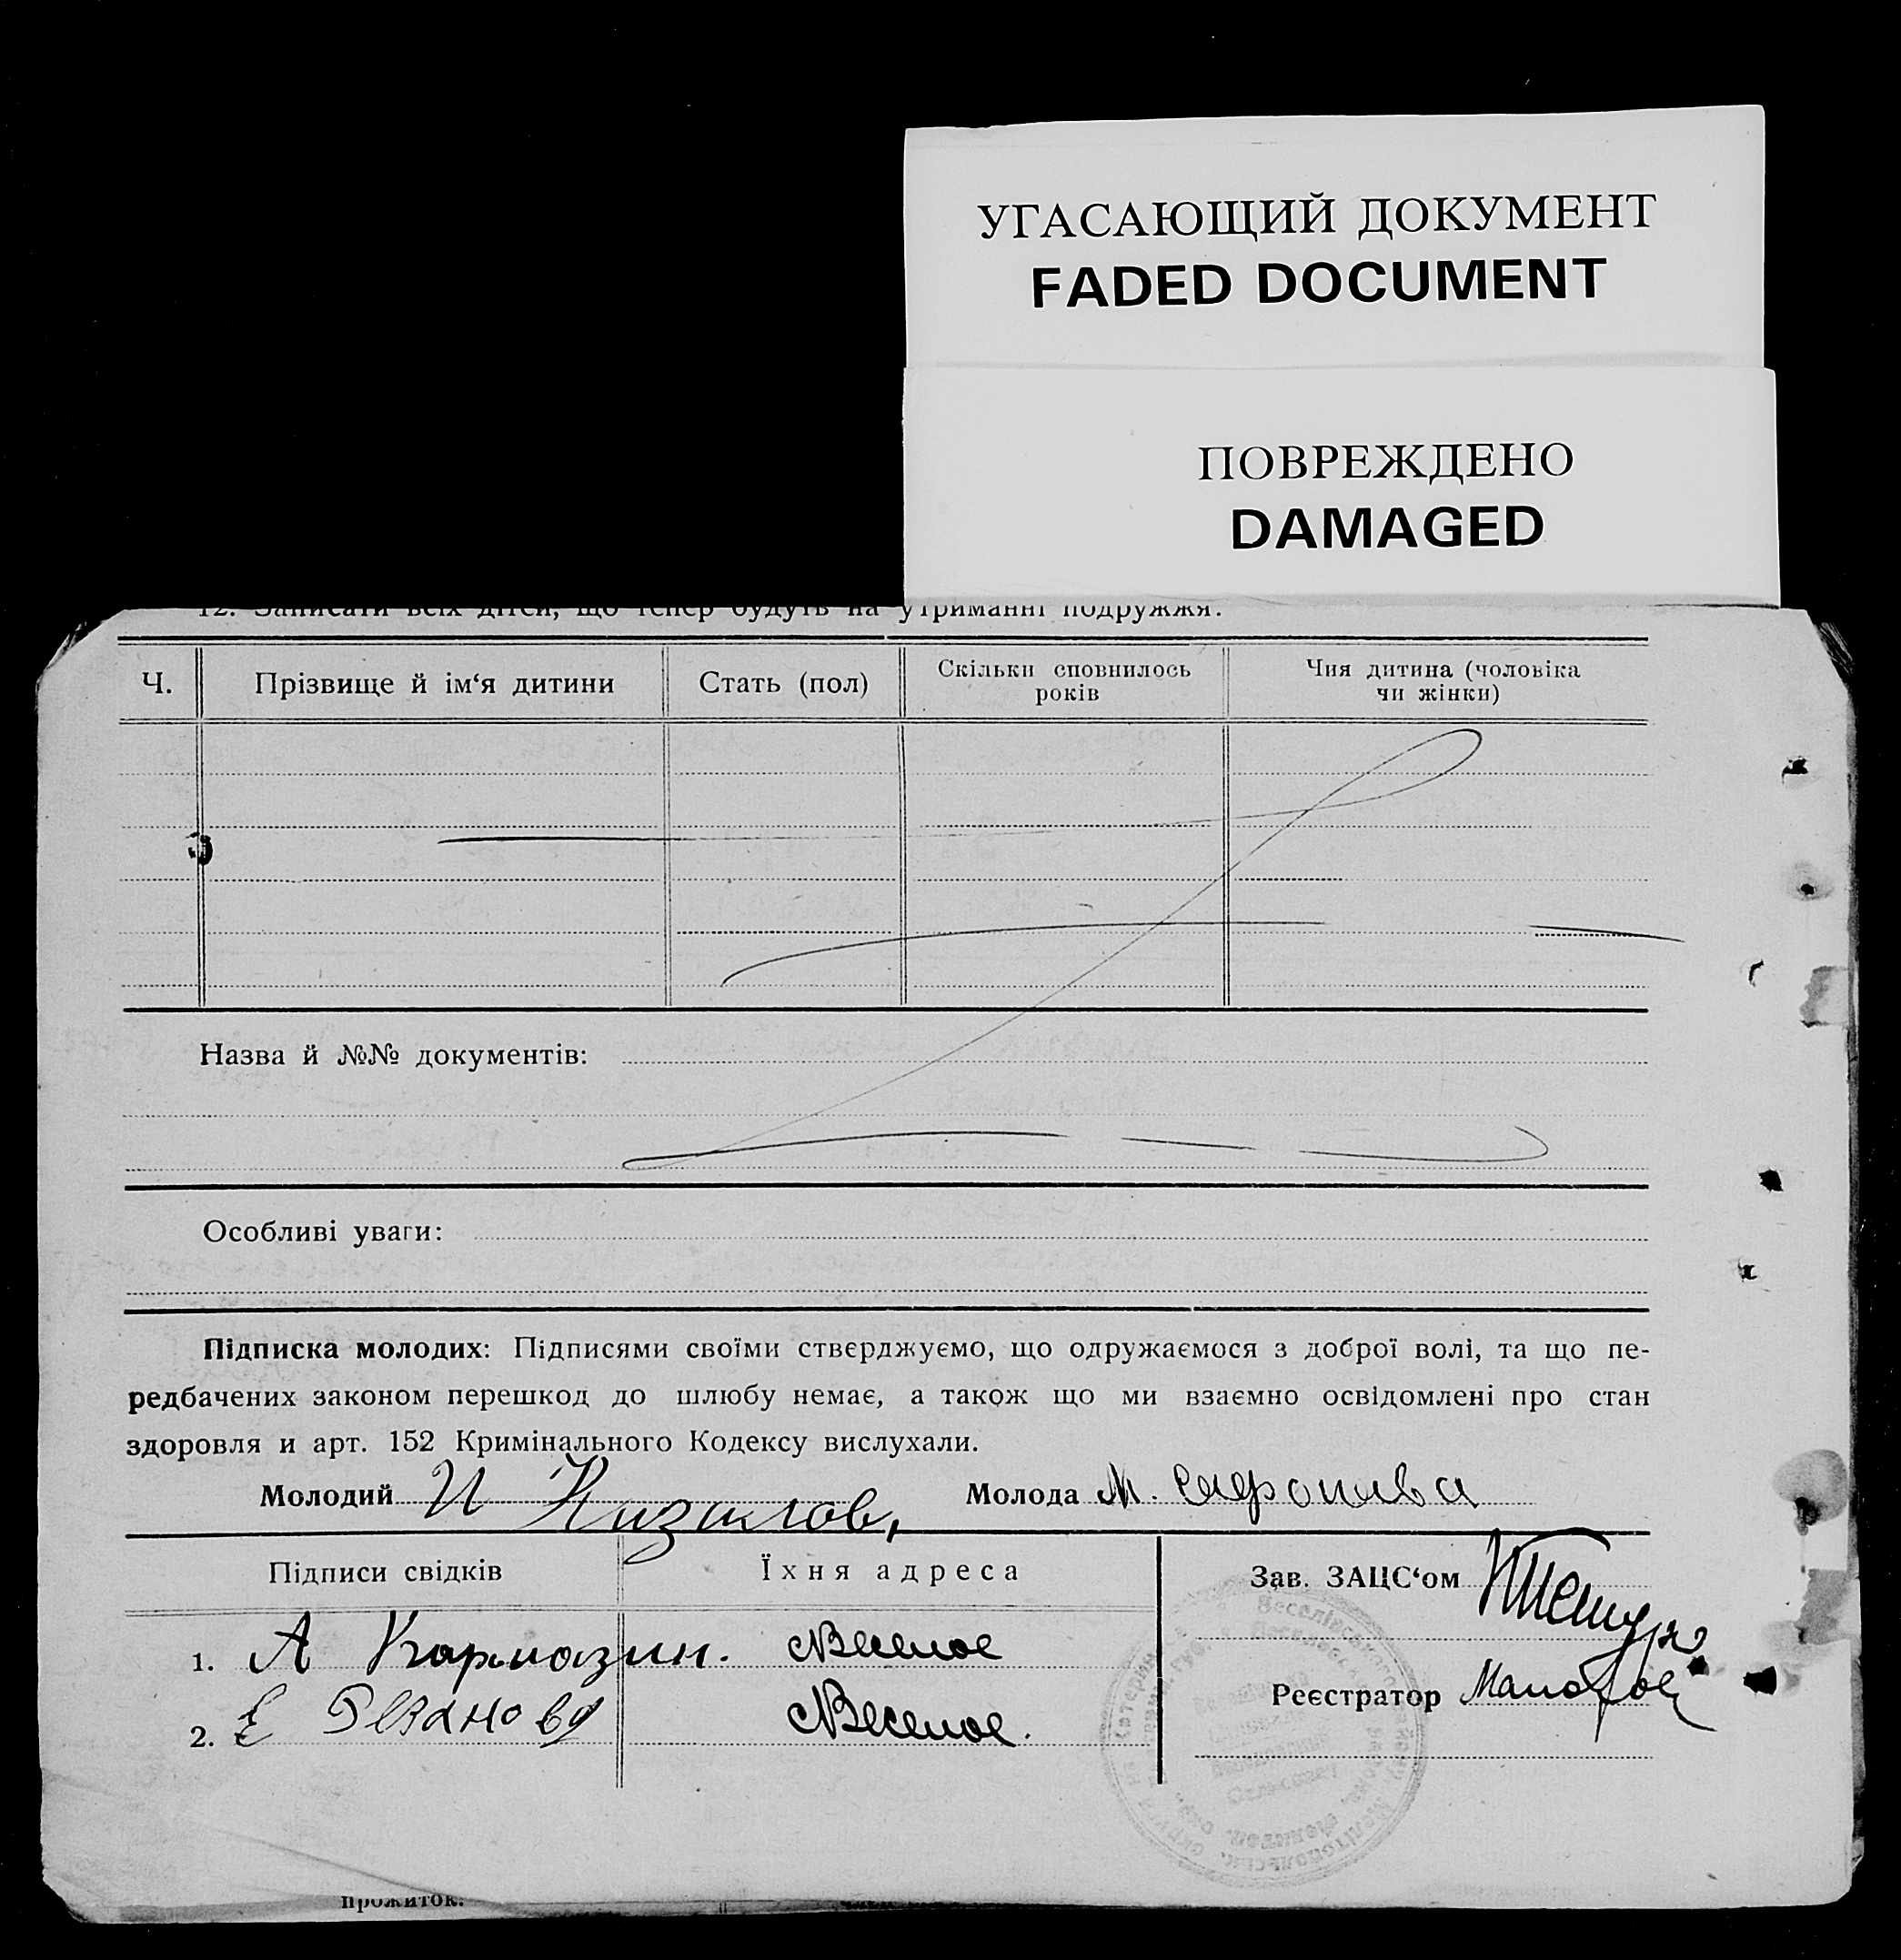 УГАСАЮЩИЙ ДОКУМЕНТ
FADED DOCUMENT
ПОВРЕЖДЕНО
DAMAGED
12. Записати всіх дітей, що тепер будуть на утриманні подружжя:
Ч. Прізвище й ім‘я дитини Стать (пол) Скільки сповнилось років Чия дитина (чоловіка чи жінки)
Назва й №№ документів:
Особливі уваги:
Підписка молодих: Підписями своїми стверджуємо, що одружаємося з доброї волі, та що пе-
редбачених законом перешкод до шлюбу немає, а також що ми взаємно освідомлені про стан
здоровля и арт. 152 Кримінального Кодексу вислухали.
Молодий И Кизилов, Молода М. Сафонива
Підписи свідків Їхня адреса Зав. ЗАЦС‘ом
1. А Кармазин. с Веселое
Реєстратор
2. Е с Веселое.
прожиток.